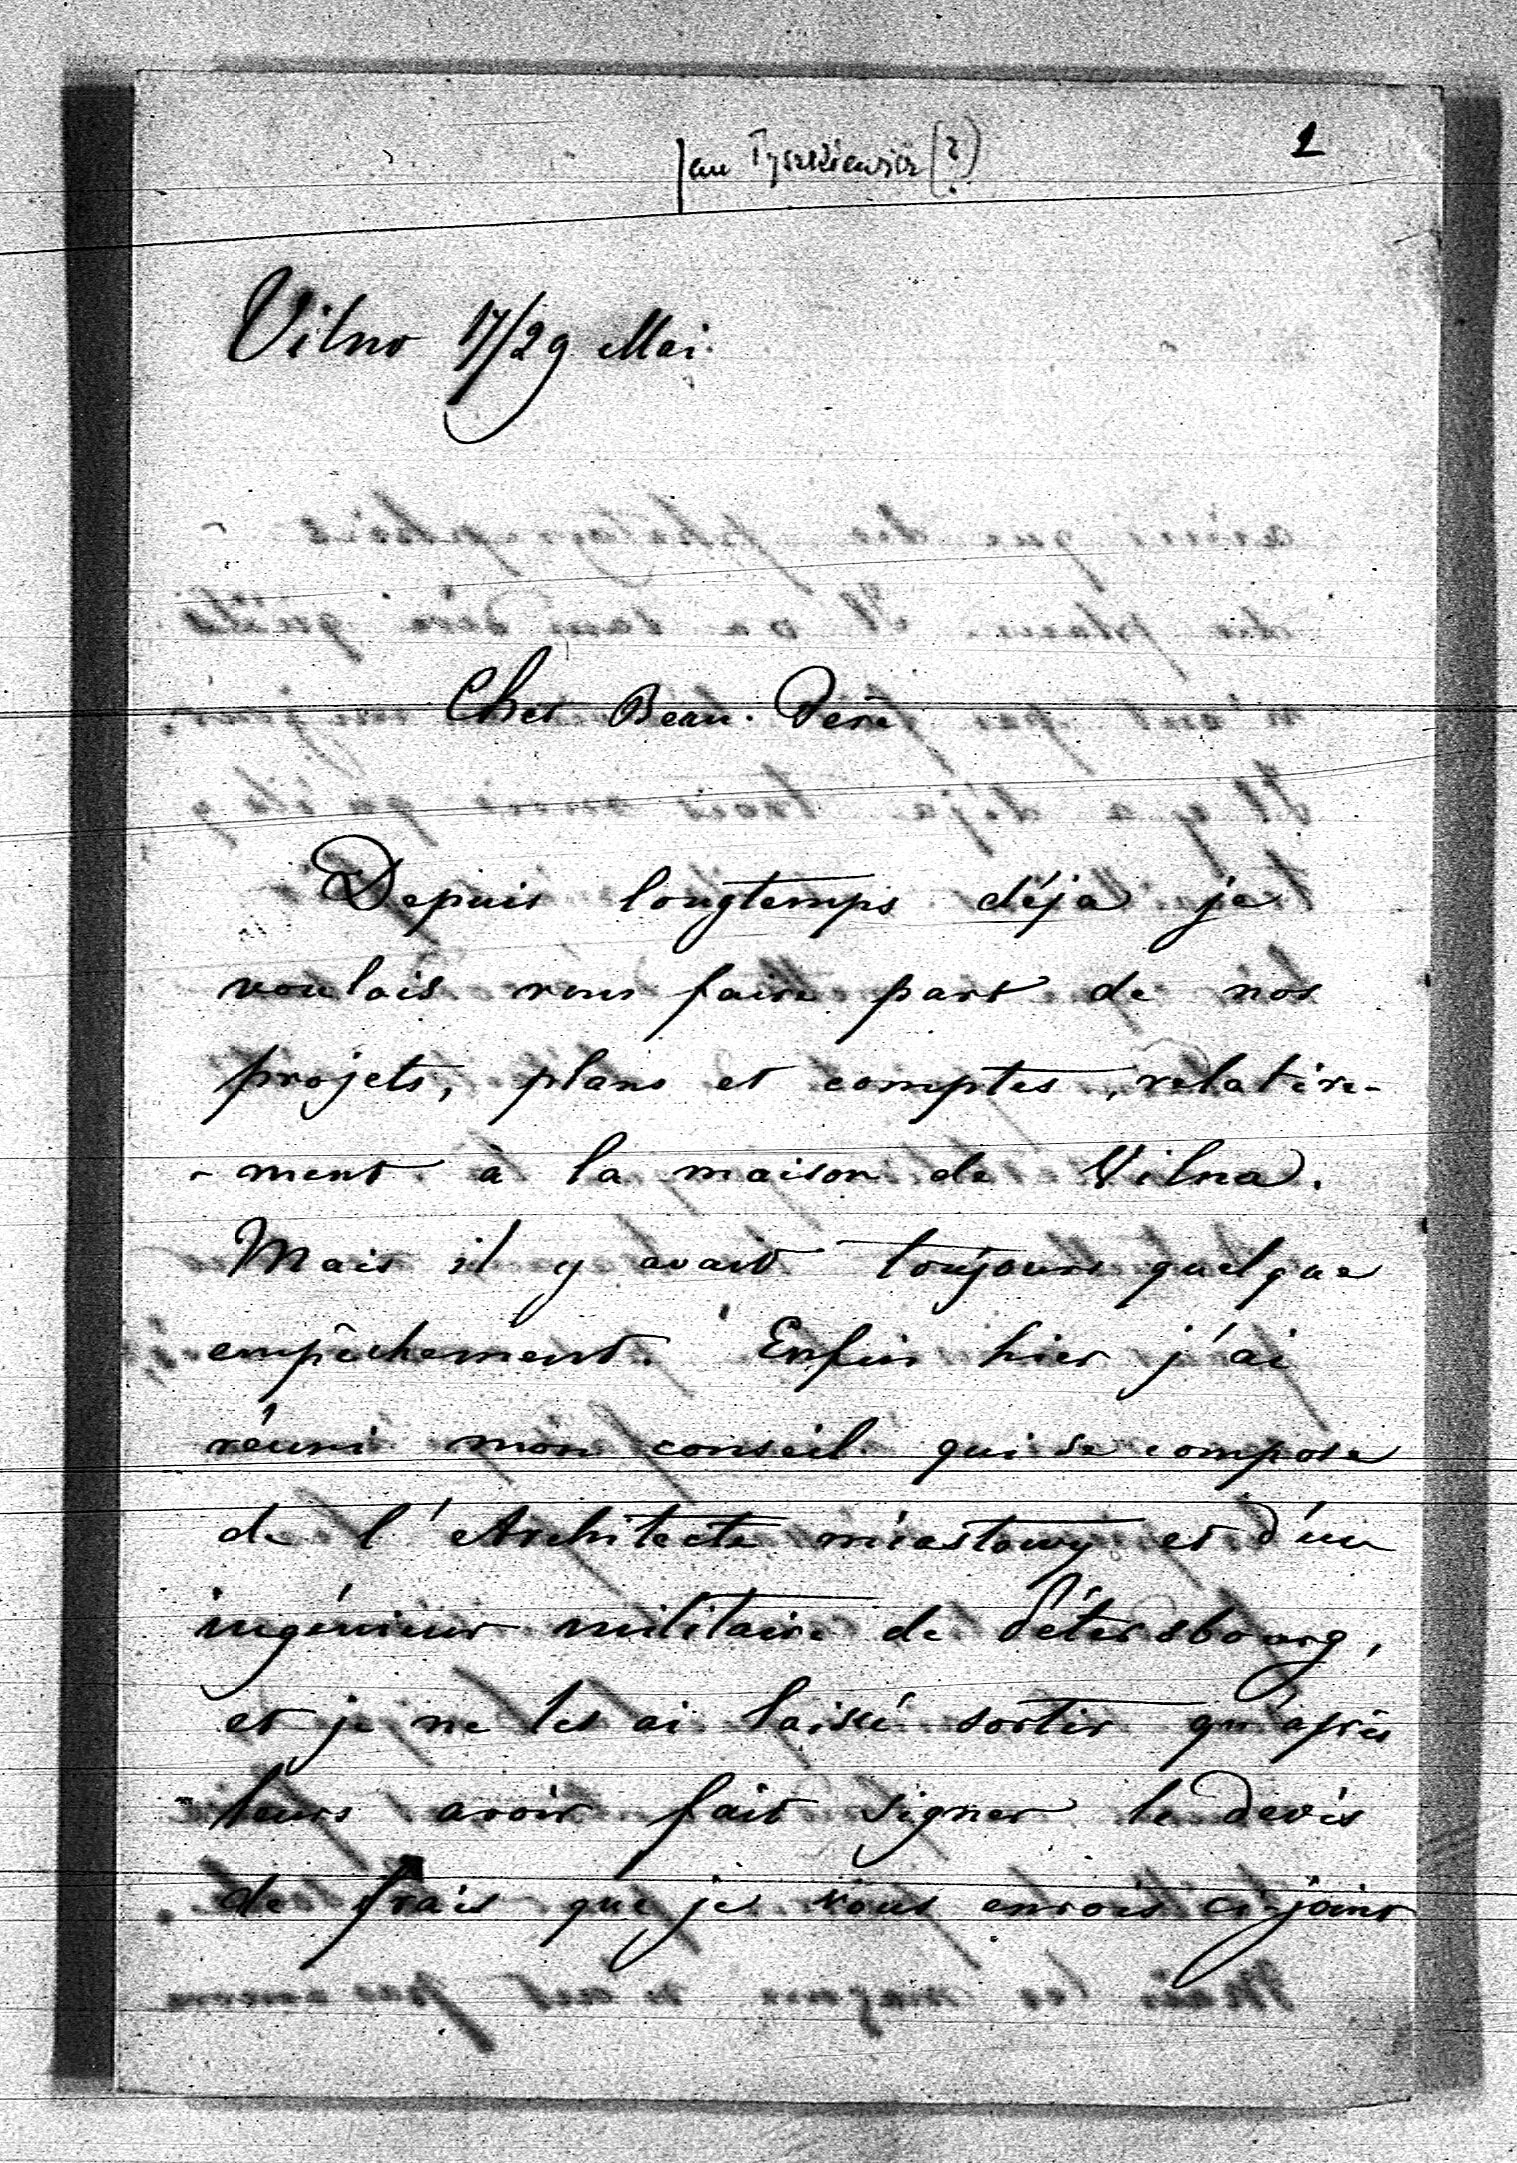 Jan Tyszkiewicz (?)
1
Vilno 17/29 Mai.
Cher Beau-Père
Depuis longtemps déja je
voulais vous faire part de nos
projets, plans et comptes, relative-
-ment à la maison de Vilna.
Mais il y avait toujours quelque
empêchement. Enfin hier j'ai
réuni mon conseil qui se compose
de l'Architecte miastowy et d'un
ingénieur militaire de Pétersbourg,
et je ne les ai laissé sortir qu'après
leurs avoir fait signer le devis
de frais que je vous envois ci-joint